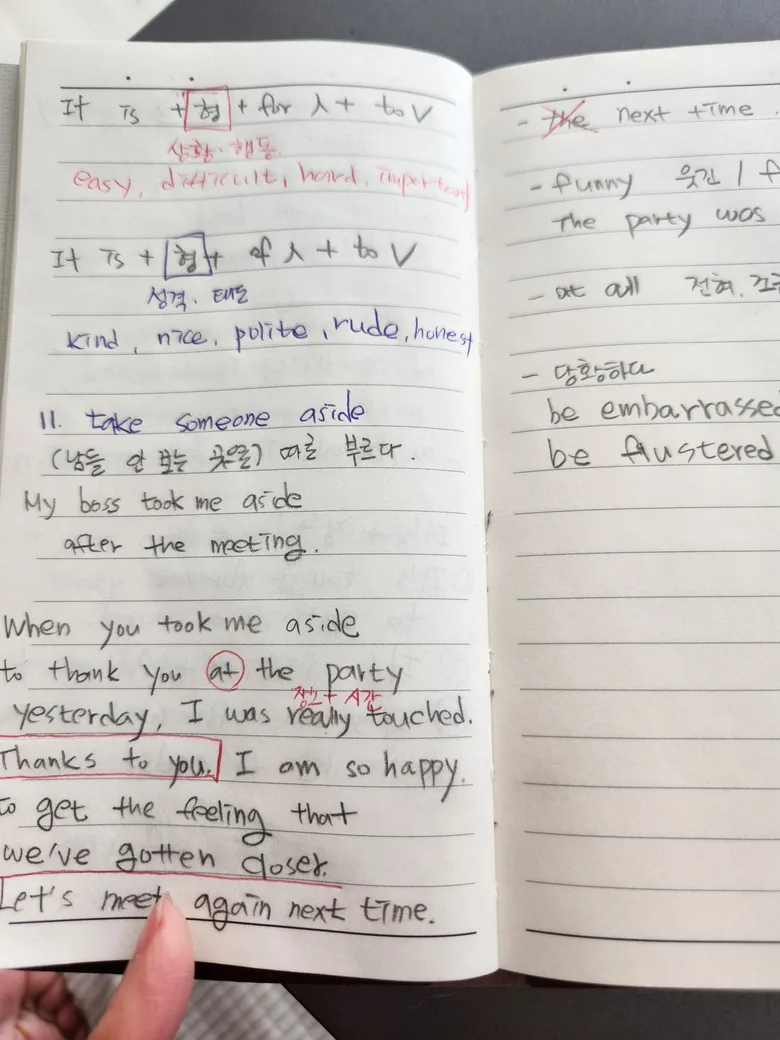 It is + 형 + for 人 + to V
상황. 행동.
easy, difficult, hard, important
It is + 형 + of 人 + to V
성격. 태도
kind, nice, polite, rude, honest
11. take someone aside
(남들 안 보는 곳으로) 따로 부르다.
My boss took me aside
after the meeting.
When you took me aside
to thank you at the party
장소 + 시간
yesterday, I was really touched.
Thanks to you. I am so happy.
to get the feeling that
we've gotten closer.
Let's meet again next time.
- the next time.
- funny 웃긴 /
The party was
- at all 전혀.
- 당황하다
be embarrassed
be flustered